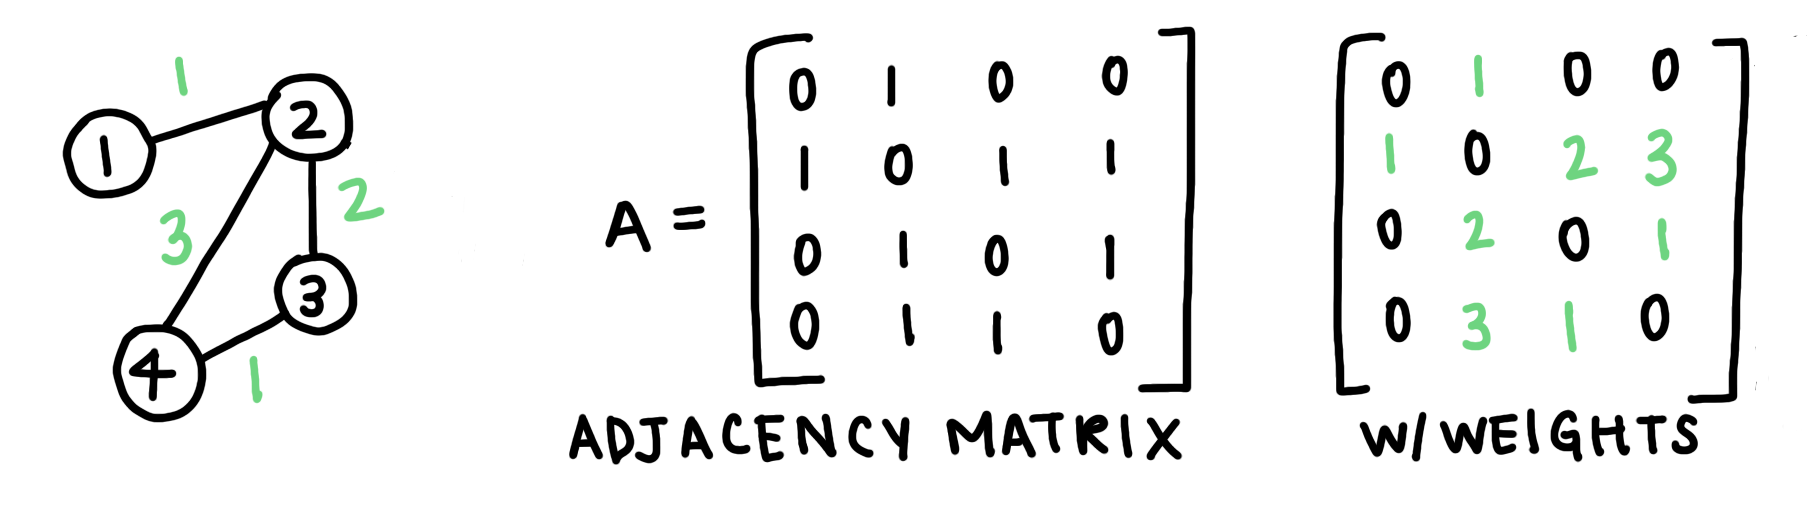 1
1
2
3
2
3
4
1
A = 0 1 0 0
1 0 1 1
0 1 0 1
0 1 1 0
ADJACENCY MATRIX
0 1 0 0
1 0 2 3
0 2 0 1
0 3 1 0
W/ WEIGHTS